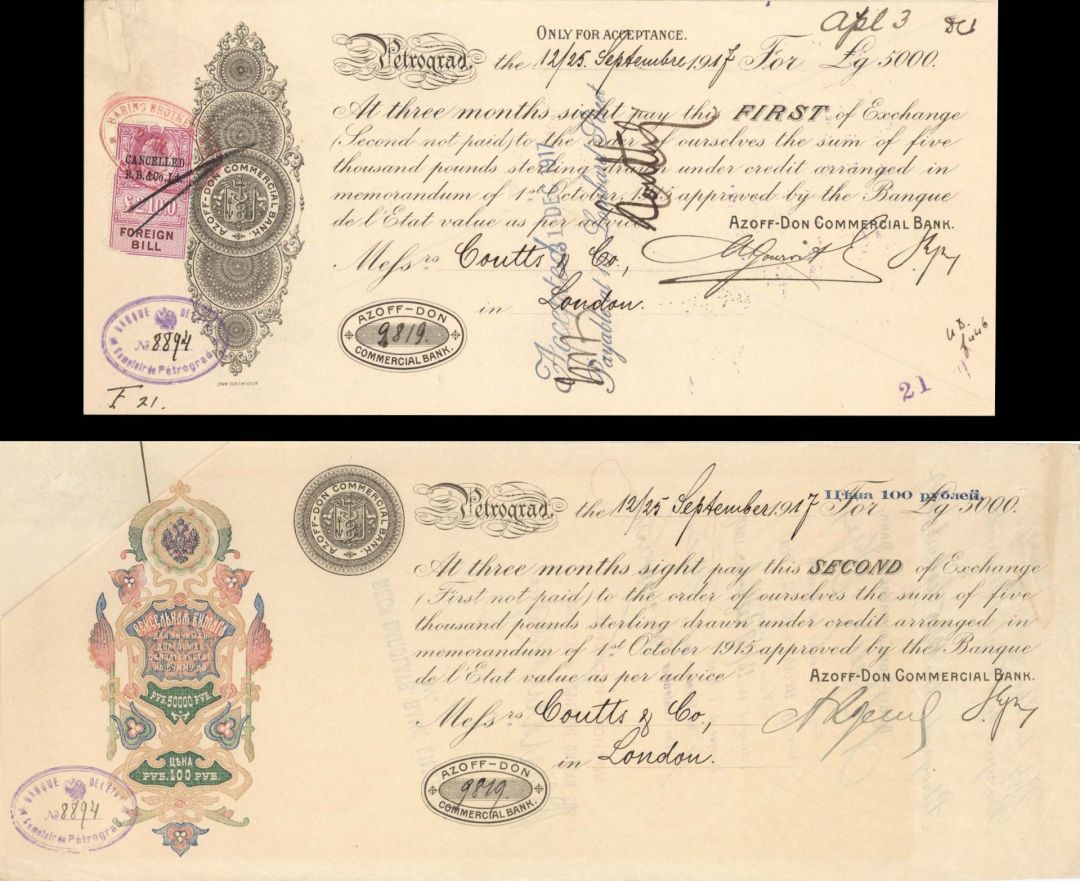 ONLY FOR ACCEPTANCE.
Apl 3
Petrograd. the 12/25. Septembre 1917 For £g 5000.
At three months sight pay this FIRST of Exchange
(Second not paid) to the order of ourselves the sum of five
thousand pounds sterling drawn under credit arranged in
memorandum of 1st October 1915 approved by the Banque
de l'Etat value as per advice
AZOFF-DON COMMERCIAL BANK.
Messrs Coutts & Co.,
in London.
BARING BROTHERS
CANCELLED
B.B.&Co.Ld.
£ 100
FOREIGN
BILL
AZOFF-DON COMMERCIAL BANK.
Accepted 31 DEC 1917
Payable at
AZOFF-DON
9819.
COMMERCIAL BANK.
BANQUE DE L'ETAT
№ 8894
Comptoir de Pétrograd
F 21.
21
Petrograd. the 12/25 September 1917 For £g 5000.
Цѣна 100 рублей.
At three months sight pay this SECOND of Exchange
(First not paid) to the order of ourselves the sum of five
thousand pounds sterling drawn under credit arranged in
memorandum of 1st October 1915 approved by the Banque
de l'Etat value as per advice
AZOFF-DON COMMERCIAL BANK.
Messrs Coutts & Co.,
in London.
AZOFF-DON COMMERCIAL BANK.
ВЕКСЕЛЬНАЯ БУМАГА
ДЛЯ ЛИЧНЫХЪ
ДОЛГОВЫХЪ
ОБЯЗАТЕЛЬСТВЪ
НА СУММУ ДО
РУБ. 50000 РУБ.
ЦѢНА
РУБ. 100 РУБ.
AZOFF-DON
9819
COMMERCIAL BANK.
BANQUE DE L'ETAT
№ 8894
Comptoir de Pétrograd